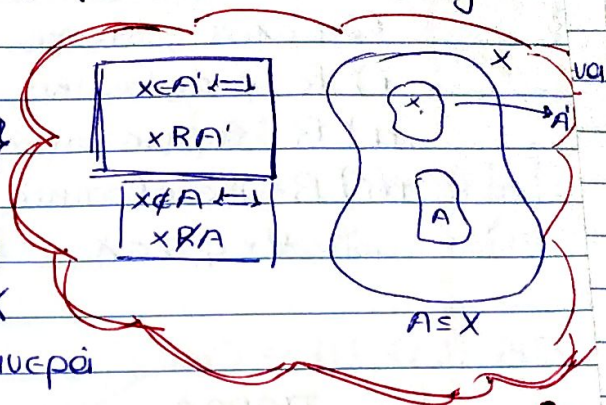 x∈A' ⟺
xRA'
x∉A ⟺
xR̸A
X
x
A'
A
A⊆X
ναι
νερά